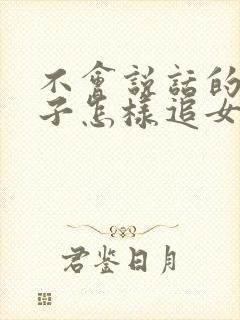 不會説話的
子怎樣追女
君鉴日月